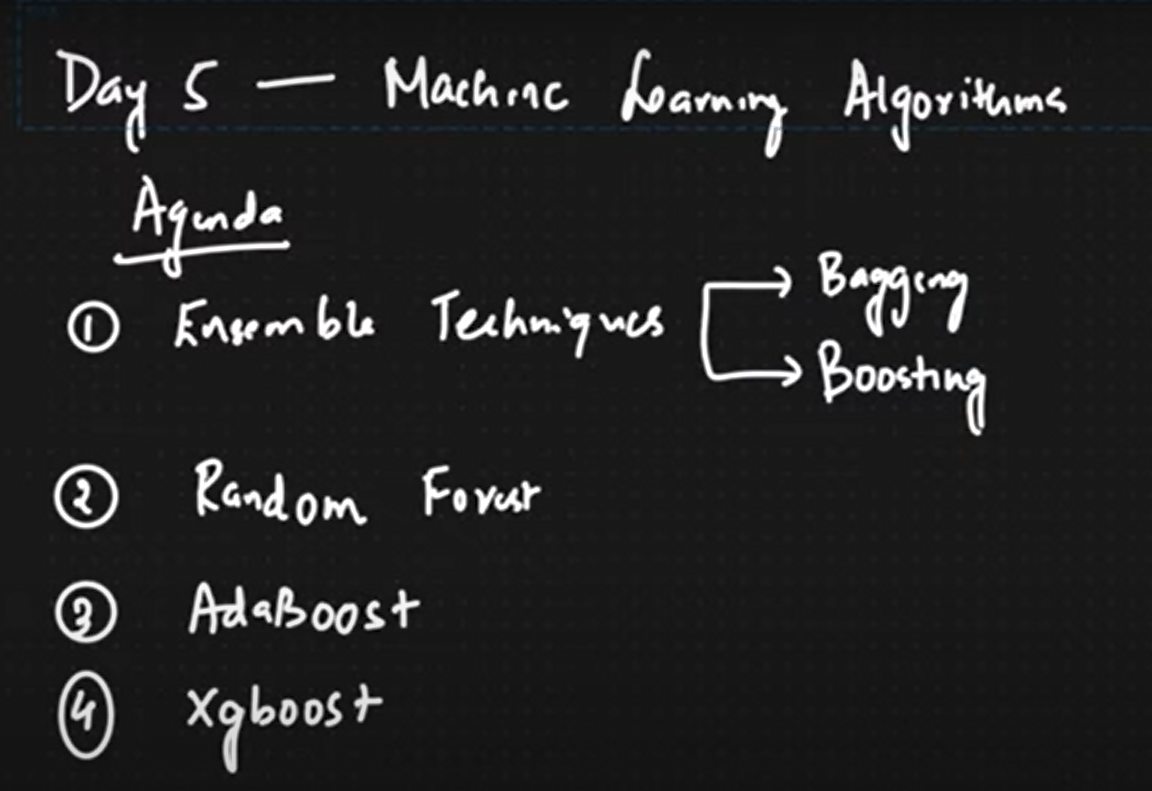 Day 5 — Machine Learning Algorithms
Agenda
① Ensemble Techniques → Bagging
→ Boosting
② Random Forest
③ AdaBoost
④ Xgboost